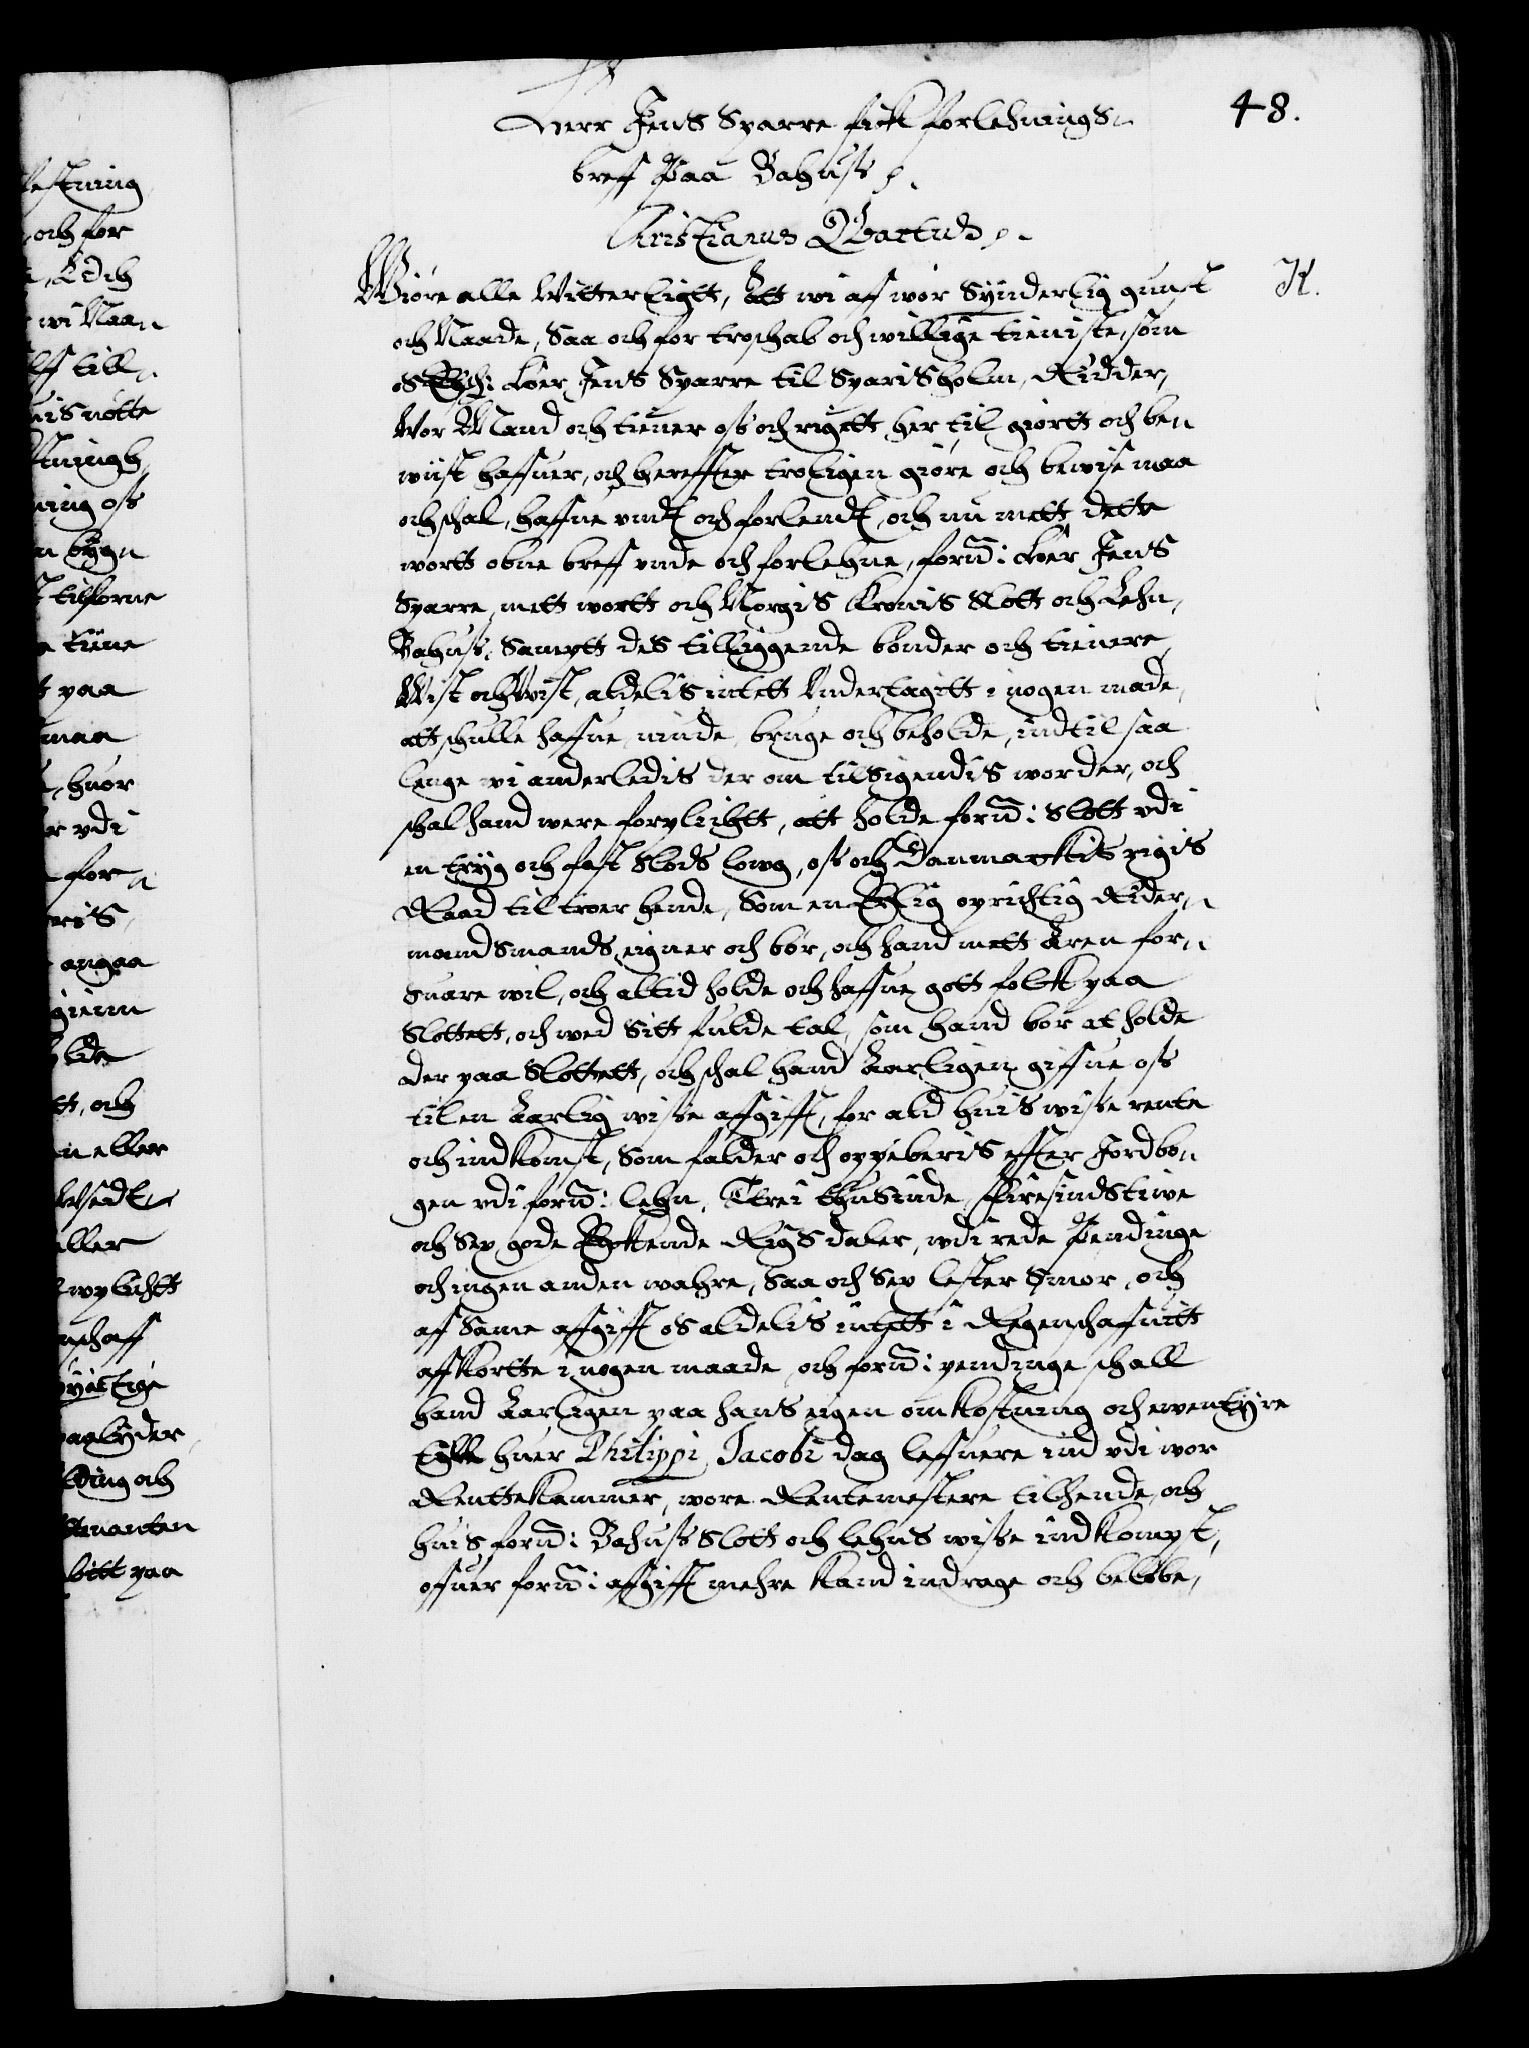 48.
Herr Jens Sparre fick forlehnings-
breff Paa Bahuss /.
Christianus Quartus /.
K.
Giøre alle Witterligtt, Att wi af wor Synderlig gunst
och Naade, Saa och for troschab och willige tieniste, som
os Elsch: Her Jens Sparre til Sparisholm, Ridder,
Wor Mand och tiener oss och rigett her til giortt och be-
wiist haffuer, och hereffter troligen giøre och bewise maa
och schal, haffue vndt och forlendt, och nu mett dette
wortt obne breff vnde och forlehne, forn: Her Jens
Sparre, mett wortt och Norgis Kronis Slott och Lehn,
Bahuss, Samptt des tilliggende bonder och tienere,
Wist och Uwist, aldelis intett Undertagitt i nogen made,
att schulle haffue, niude, bruge och beholde, indtil saa
lenge wi anderledis der om tilsigendis worder, och
schal hand were forplichtt, att holde forn: Slott vdi
en tryg och fast Slods lowg, oss och Danmarckis rigis
Raad til troer hende, Som en Erlig oprichtig Ridder-
mands mands eigner och bør, och hand mett Æren for-
suare wil, och altid holde och haffue gott folck paa
Slottett, och wed Sitt fulde tal, som hand bør at holde
der paa Slottett, och schal hand Aarligen giffue oss
til en Aarlig wisse affgifft, for ald huis wisse rente
och indkomst, Som falder och oppeberis effter Jordbo-
gen vdi forn: lehn, Trei thusinde, Firesindstiwe
och Sex gode Rigsdaler, vdi rede Pendinge
och ingen anden wahre, Saa och Sex lester Smør, och
af Same affgifft os aldelis intett i Regenschaffuitt
affkortte i nogen maade, och forn: pendinge schall
hand Aarligen paa hans eigen omkostning och ewentyire
till huer Philippi Jacobi dag leffuere ind vdi wor
Renttekammer, wore Rentemestere tilhende, och
huis forn: Bahuss Slott och lehns wisse indkompst,
offuer forn: affgifft mehre kand indrage och beløbe,